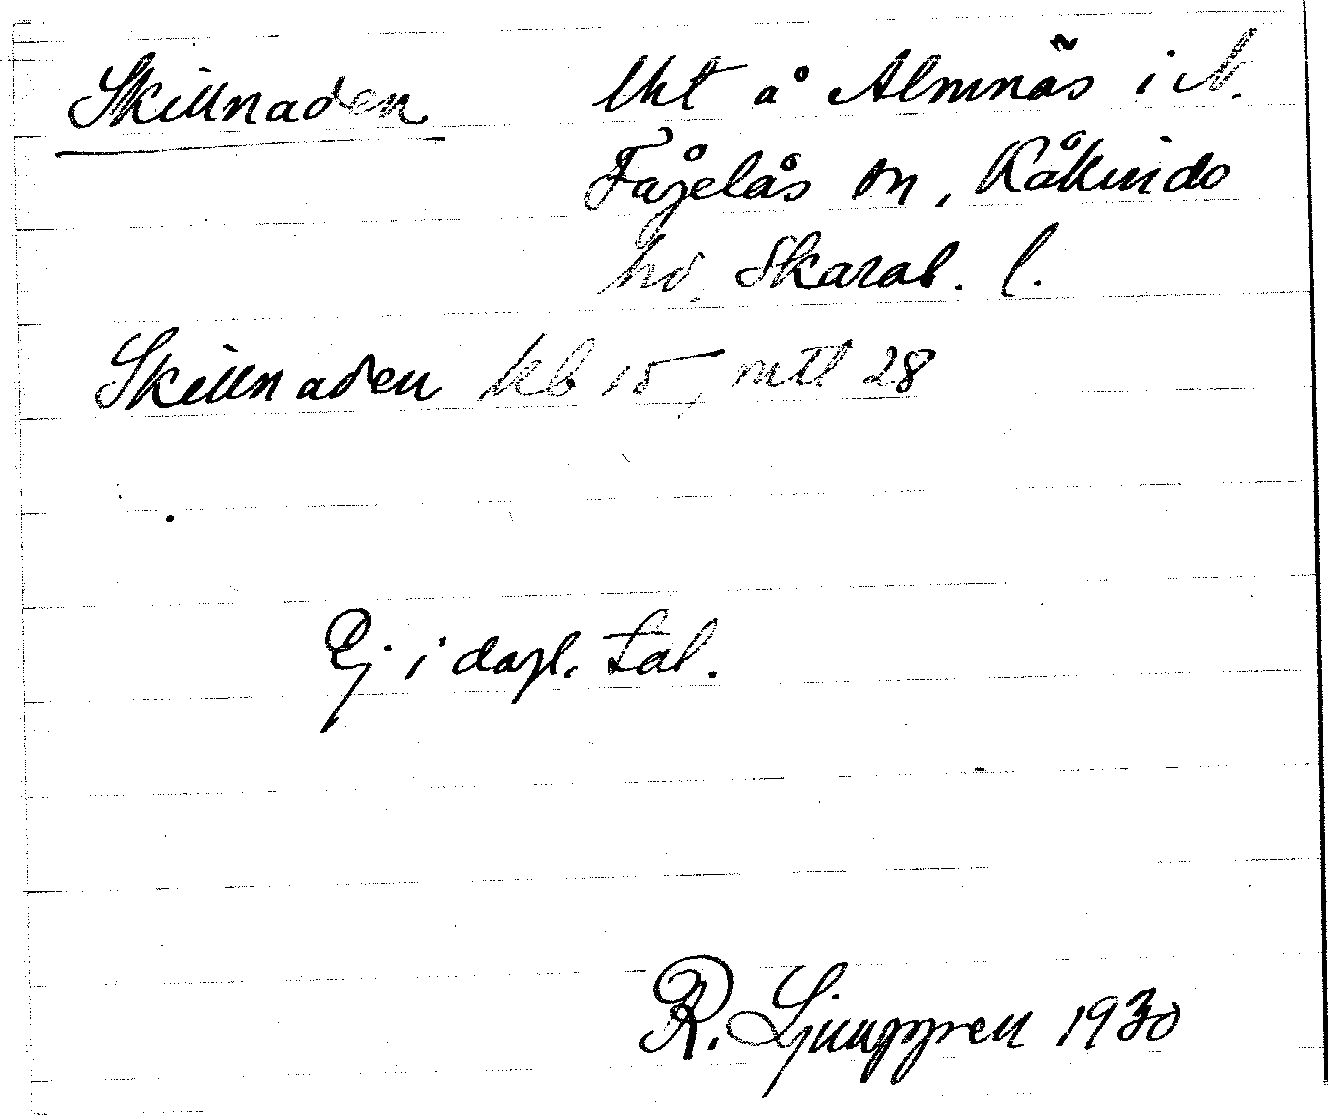 Skillnaden Uht å Almnäs i N.
Fågelås sn, Kåkinds
hd, Skarab. l.
Skillnaden kb 15, mtl 28
Ej i dagl. tal.
R. Ljunggren 1930